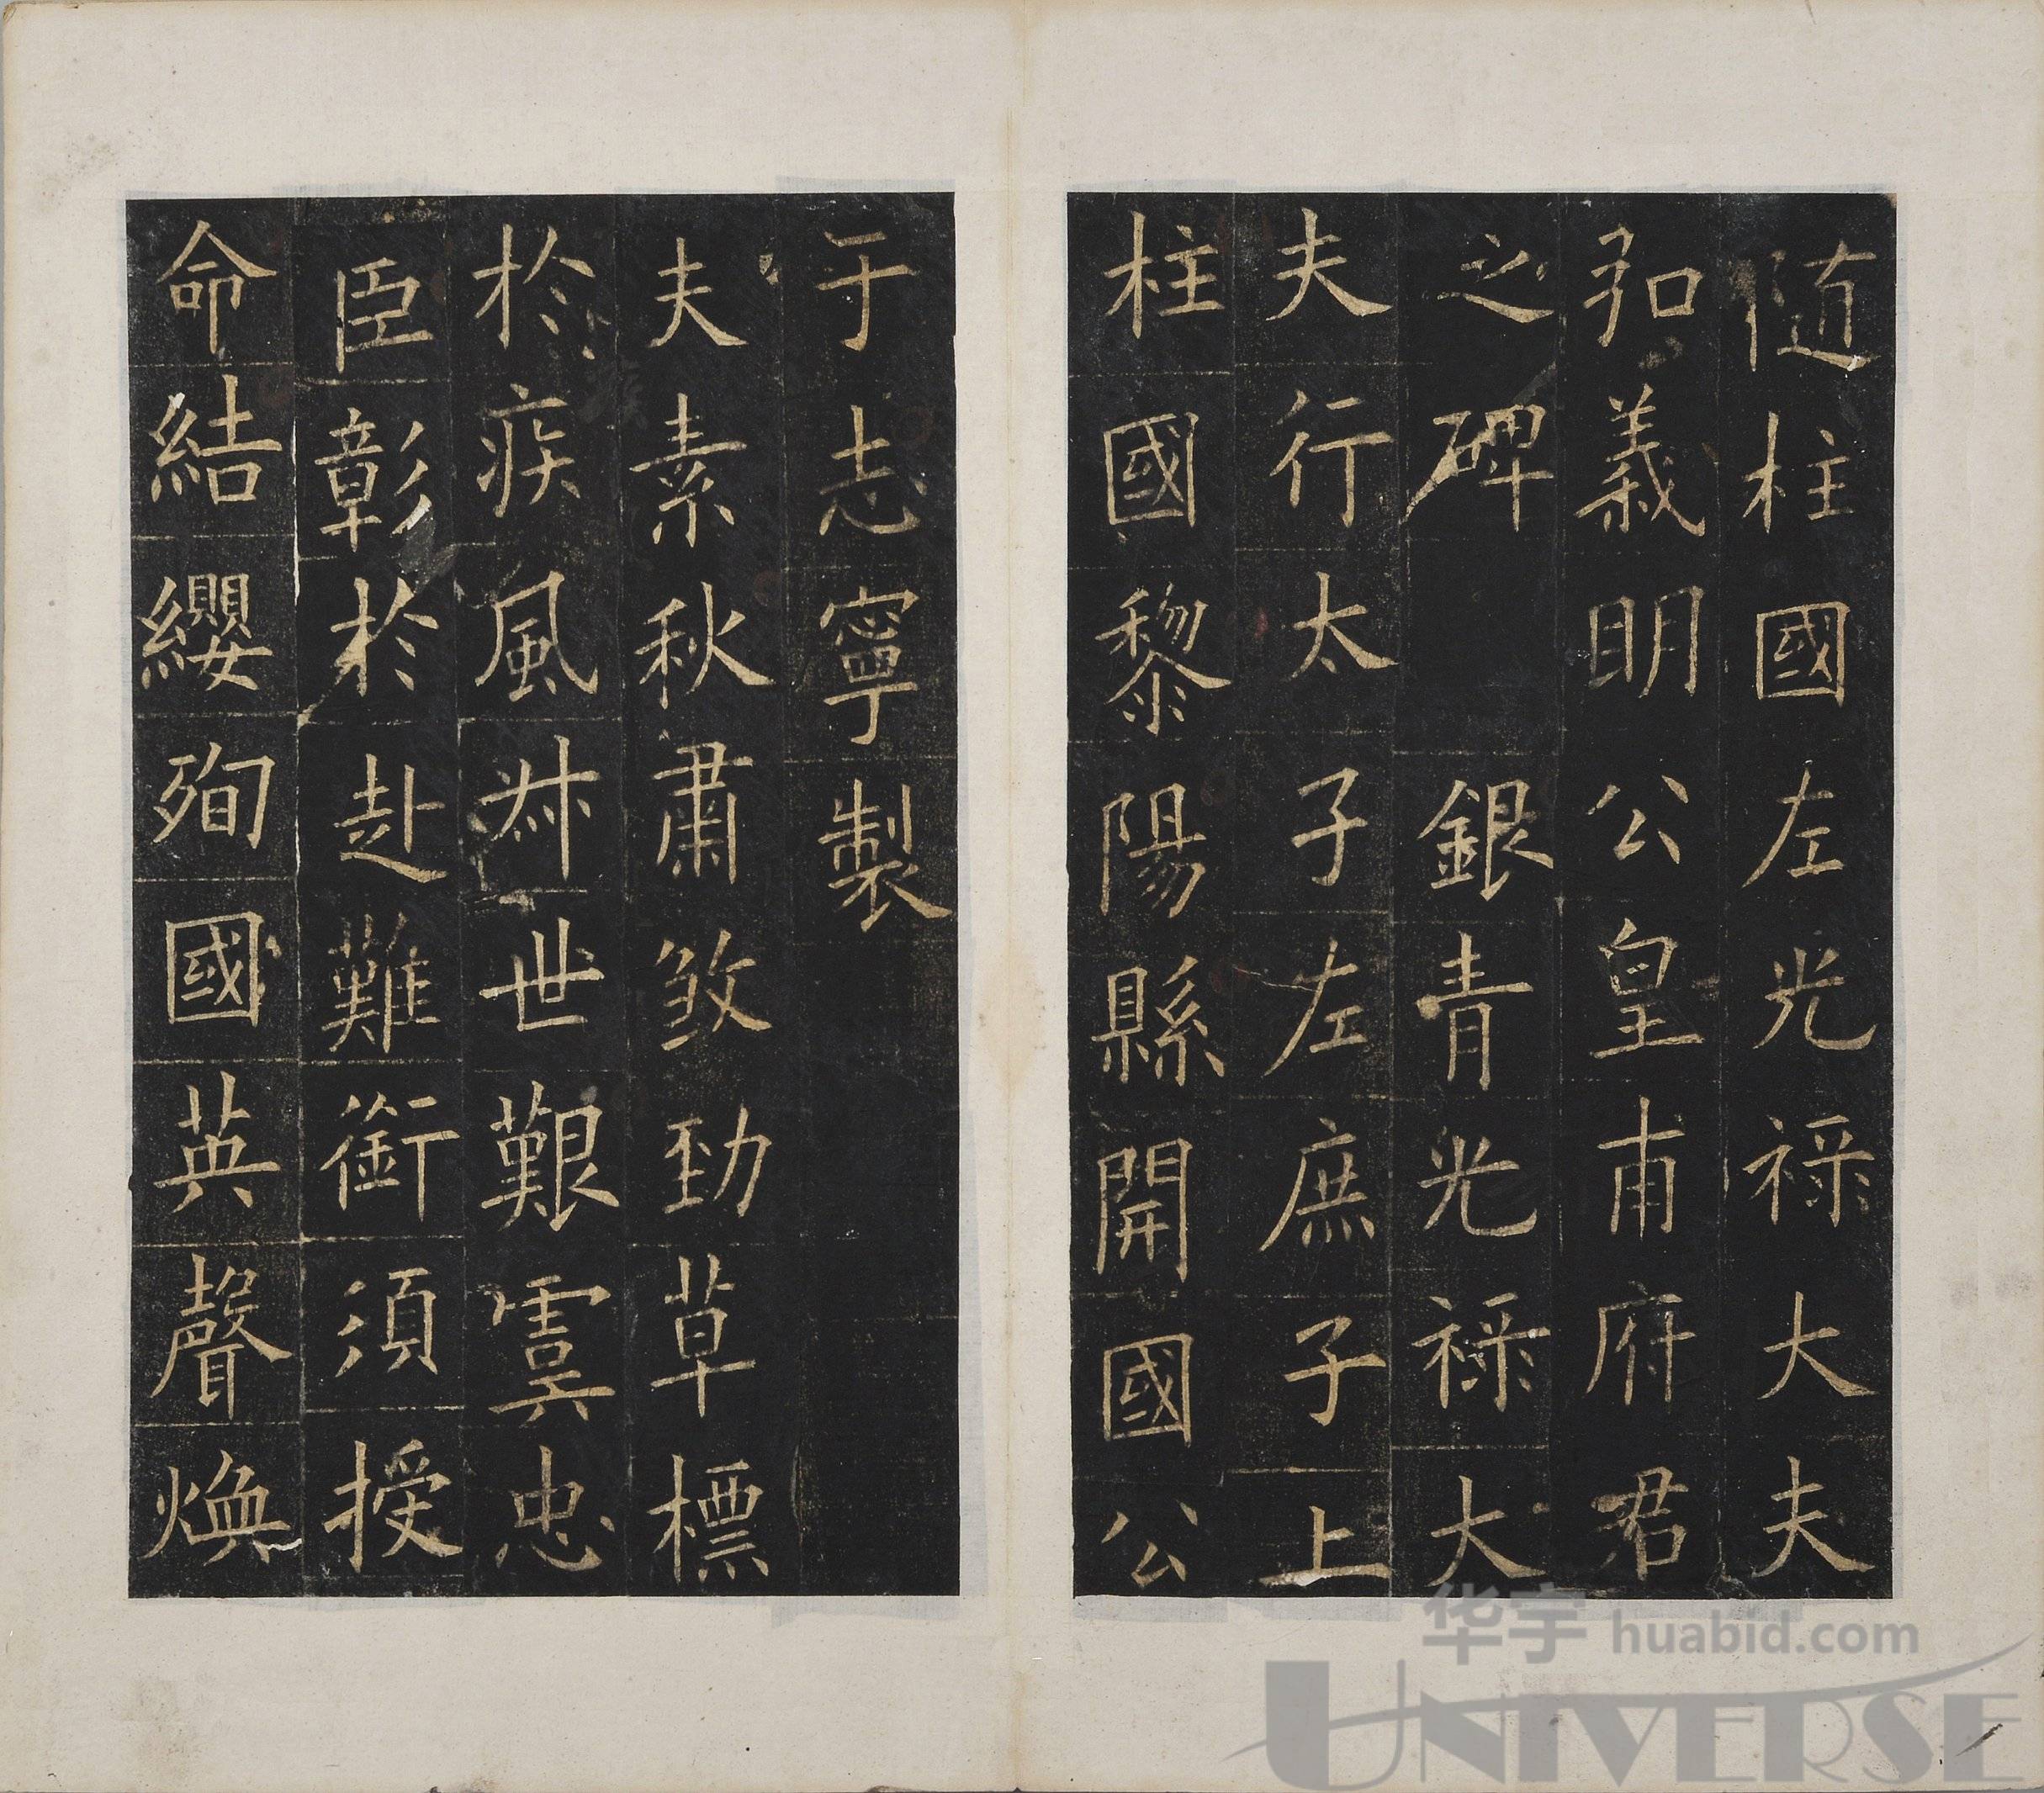 隨柱國左光祿大夫
弘義明公皇甫府君
之碑 銀青光祿大
夫行太子左庶子上
柱國黎陽縣開國公
于志寧製
夫素秋肅煞勁草標
於疾風叔世艱虞忠
臣彰於赴難銜須授
命結纓殉國英聲煥
华宇 huabid.com
UNIVERSE